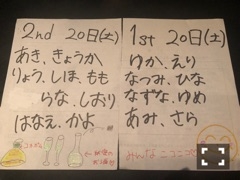 2nd 20日(土)
あき、きょうか
りょう、しほ、もも
らな、しおり
はなえ、かよ
1st 20日(土)
ゆか、えり
なつみ、ひな
なずな、ゆめ
あみ、さら
みんなニコニコ